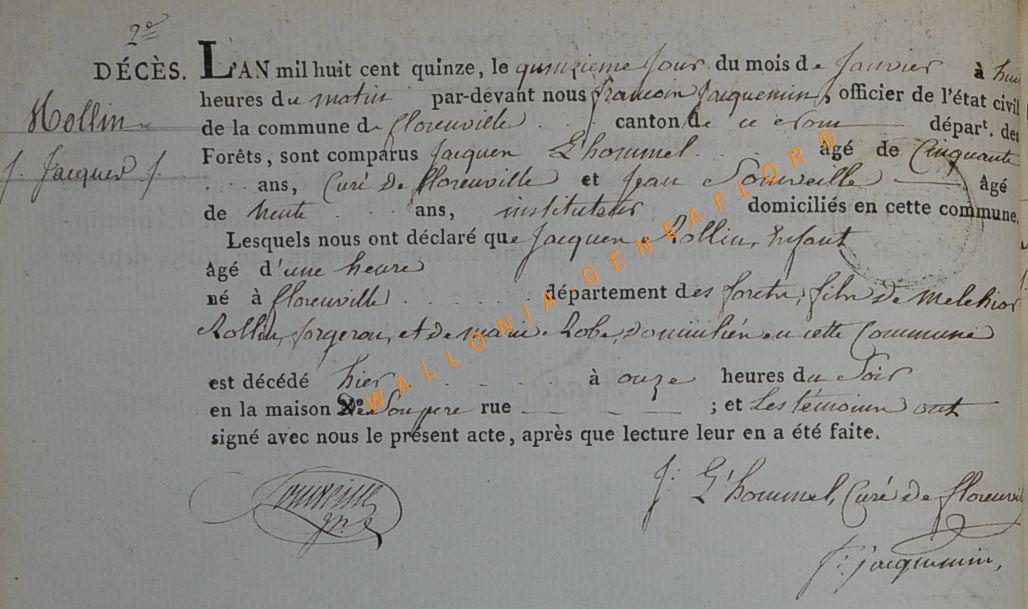 2e
DÉCÈS. L'AN mil huit cent quinze, le quinzieme Jour du mois de Janvier à huit
Rollin heures du matin par-devant nous françois Jacquemin, officier de l'état civil
de la commune de florenville canton de ce nom départ. des
J. Jacques J. Forêts, sont comparus Jacques L'hommel âgé de Cinquante
ans, Curé de florenville et Jean Souveille âgé
de trente ans, instituteur domiciliés en cette commune.
Lesquels nous ont déclaré que Jacques Rollin, Enfant
âgé d'une heure
né à florenville département des forets, fils de Melchior
Rollin, forgeron, et de marie Robe, domiciliés en cette Commune
est décédé hier à onze heures du Soir
en la maison de Son pere rue ; et Les témoins ont
signé avec nous le présent acte, après que lecture leur en a été faite.
J. L'hommel, Curé de florenvil
f: jacquemin,
WALLONIA-GENEAFLOR®